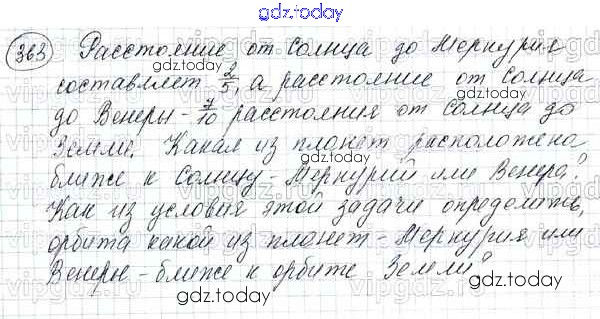 gdz.today
363 Расстояние от Солнца до Меркурия
составляет 2/5, а расстояние от Солнца
до Венеры - 7/10 расстояния от Солнца до
Земли. Какая из планет расположена
ближе к Солнцу - Меркурий или Венера?
Как из условия этой задачи определить,
орбита какой из планет - Меркурия или
Венеры - ближе к орбите Земли?
gdz.today